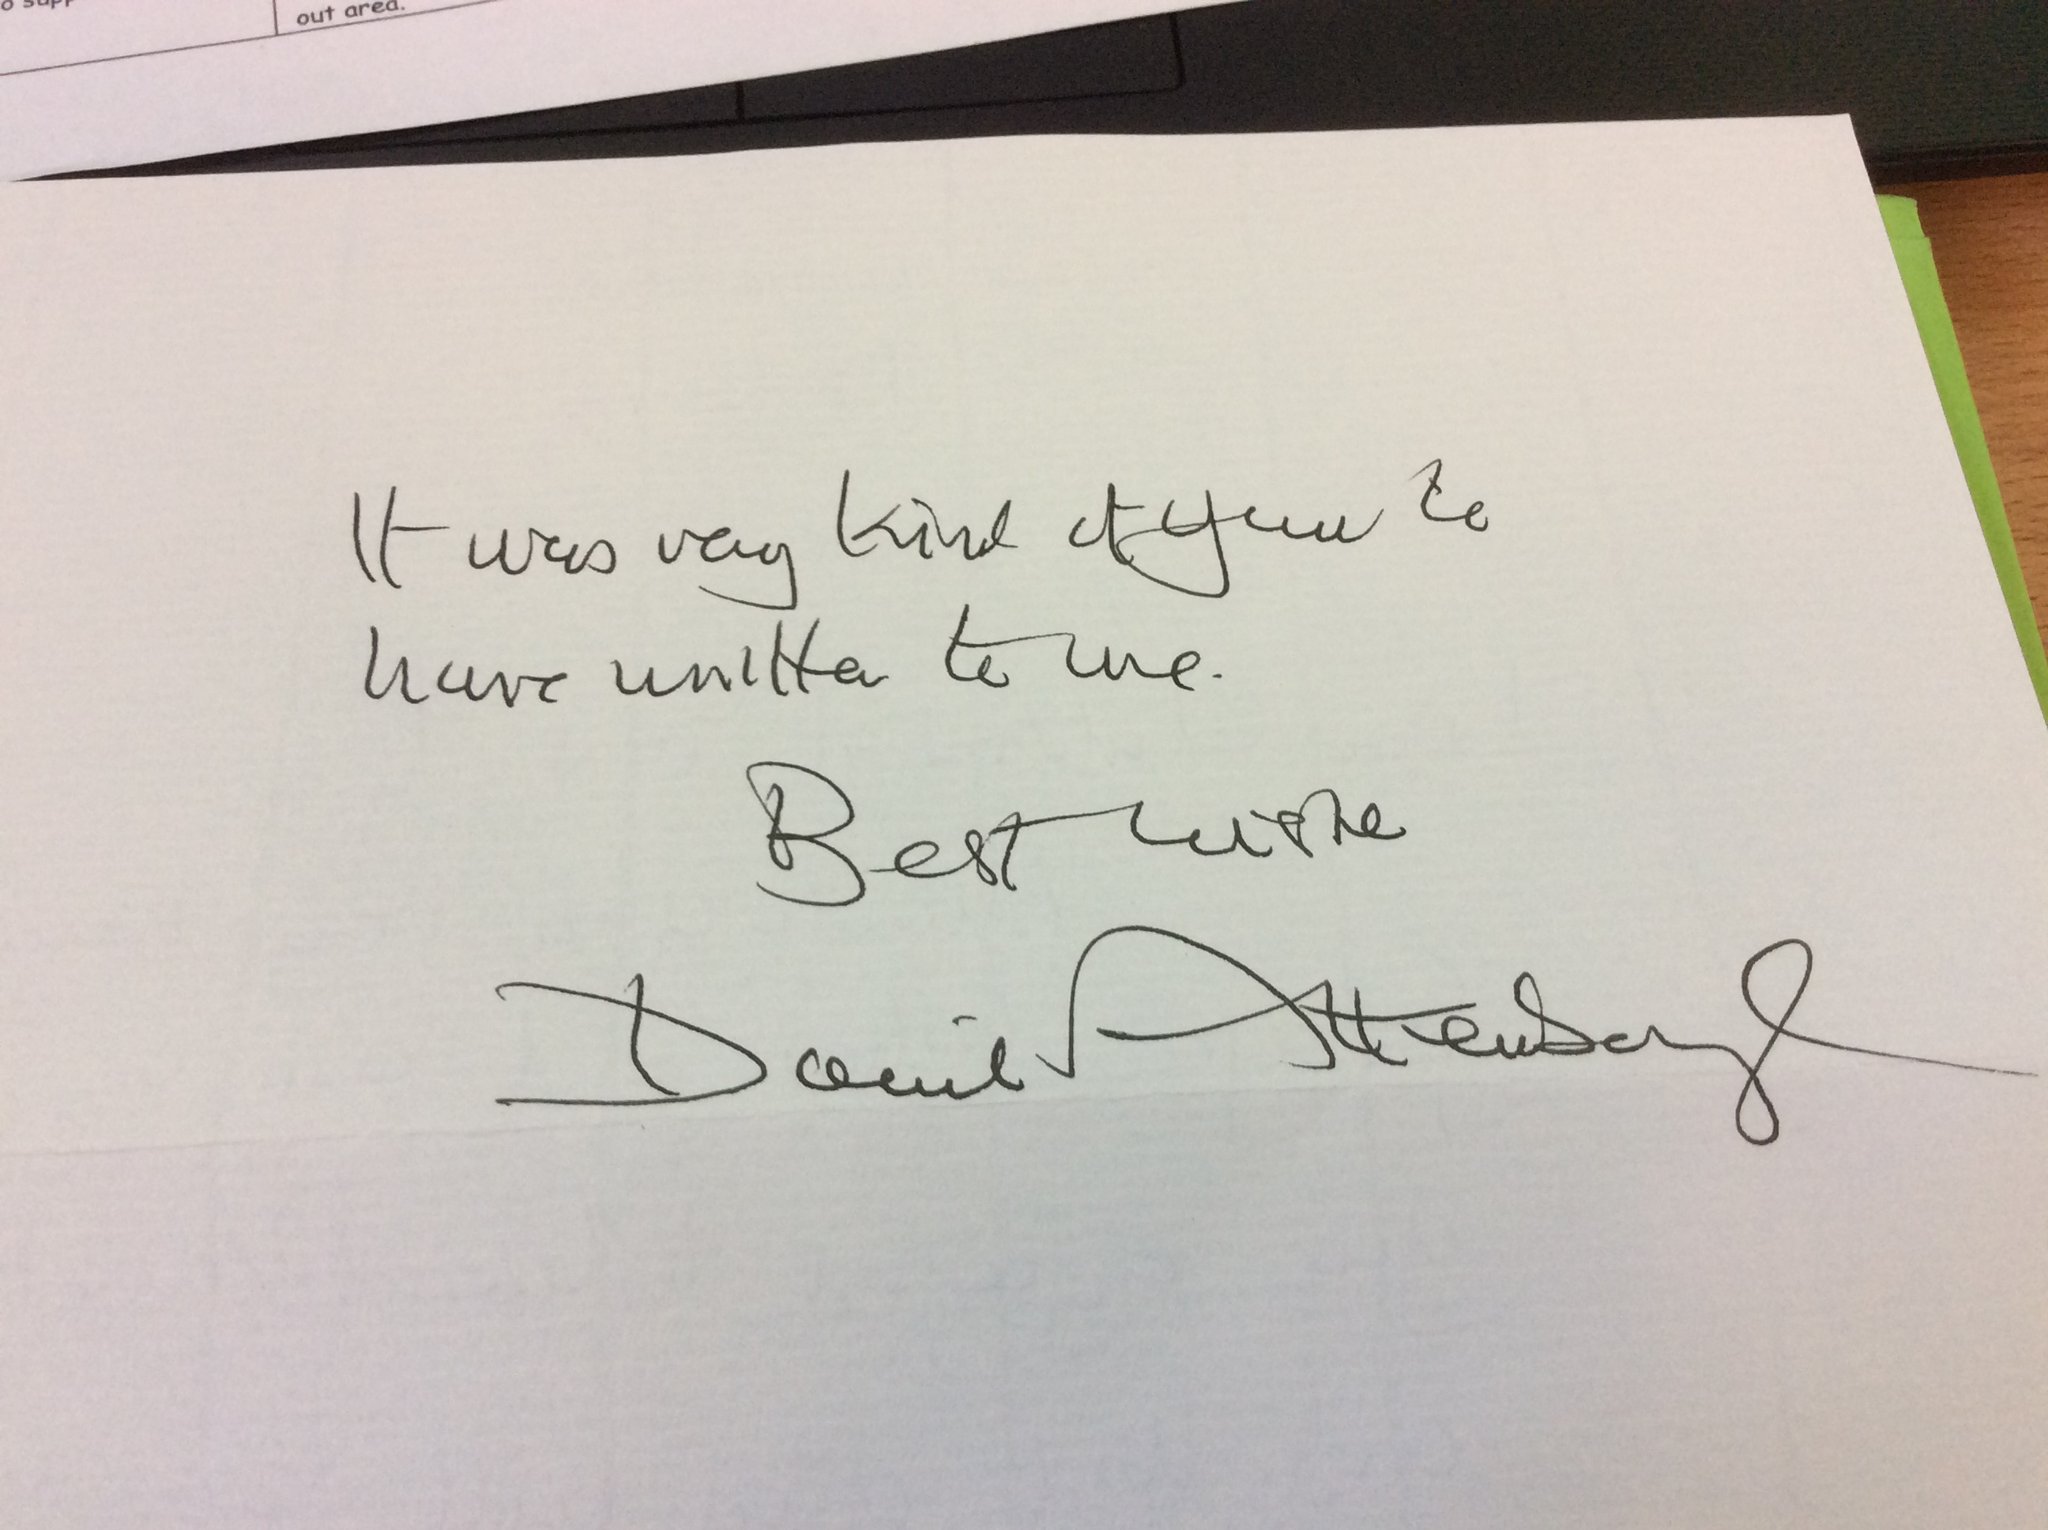 out area.
It was very kind of you to
have written to me.
Best wishes
David Attenborough